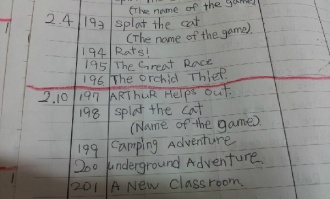 (The name of the game)
2.4 193 splat the cat
(The name of the game).
194 Rats!
195 The Great Race
196 The Orchid Thief
2.10 197 ARThuR Helps Out.
198 splat the cat
(Name of the game)
199 Camping Adventure
200 underground Adventure
201 A New Classroom